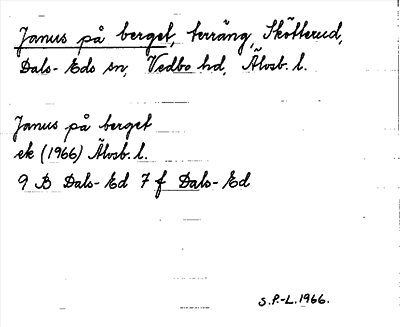 Janus på berget, terräng, Skötterud,
Dals-Eds sn, Vedbo hd, Älvsb. l.
Janus på berget
ek (1966) Älvsb. l.
9 B Dals-Ed 7 f Dals-Ed
S.P.-L. 1966.